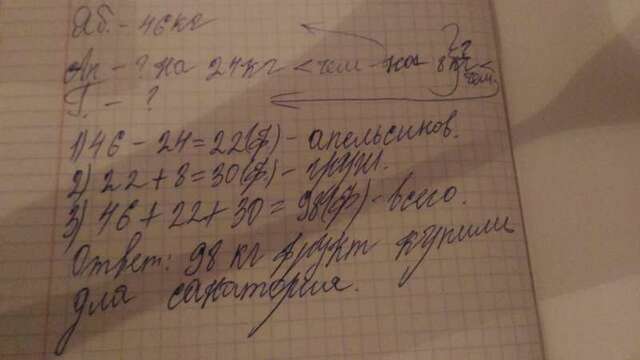 Яб. - 46 кг
Ап. - ? на 24 кг < чем на 8 кг < чем
Г. - ?
1) 46 - 24 = 22(ф) - апельсинов.
2) 22 + 8 = 30(ф) - груш.
3) 46 + 22 + 30 = 98(ф) - всего.
Ответ: 98 кг фрукт купили
для санатория.